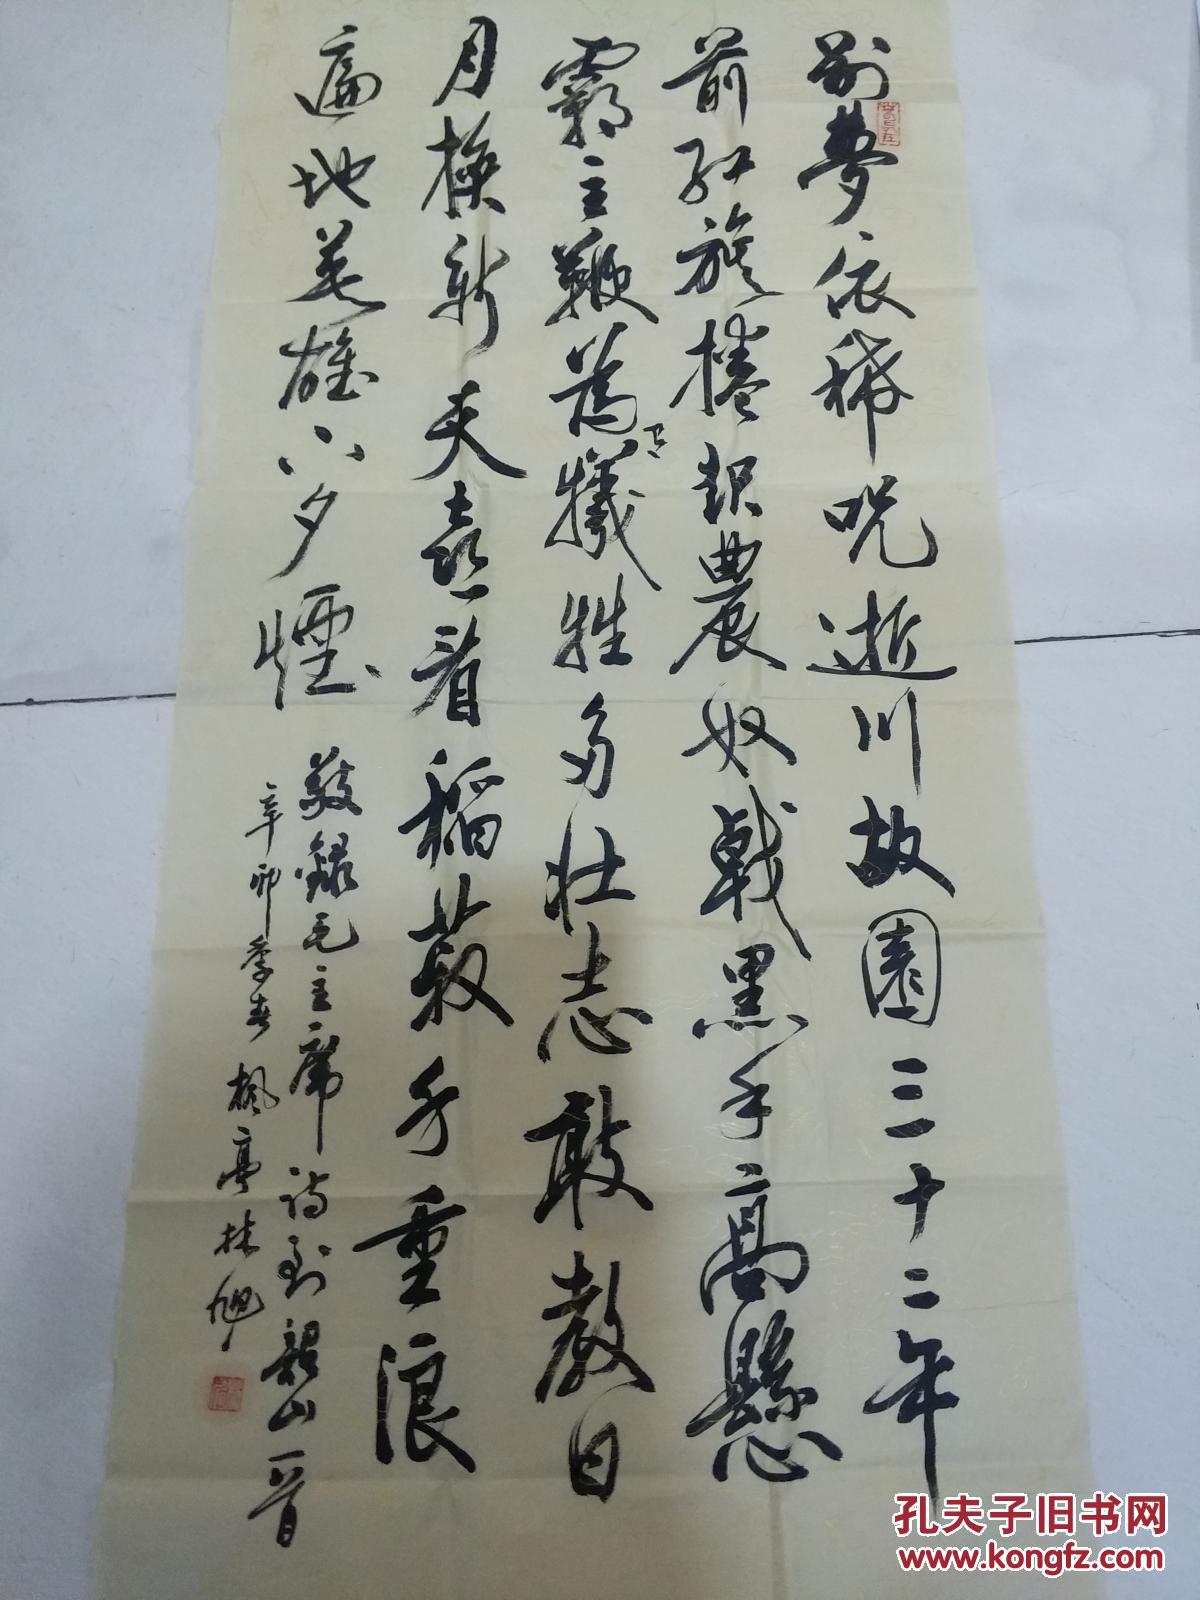 别夢依稀咒逝川故園三十二年
前紅旗捲起農奴戟黑手高懸
霸主鞭為有犧牲多壯志敢教日
月換新天喜看稻菽千重浪
遍地英雄下夕煙
敬錄毛主席詩到韶山一首
辛卯季春楓亭林旭
孔夫子旧书网
www.kongfz.com